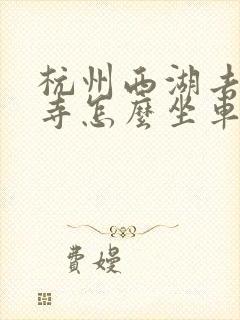 杭州西湖去
寺怎麼坐車
費嫚